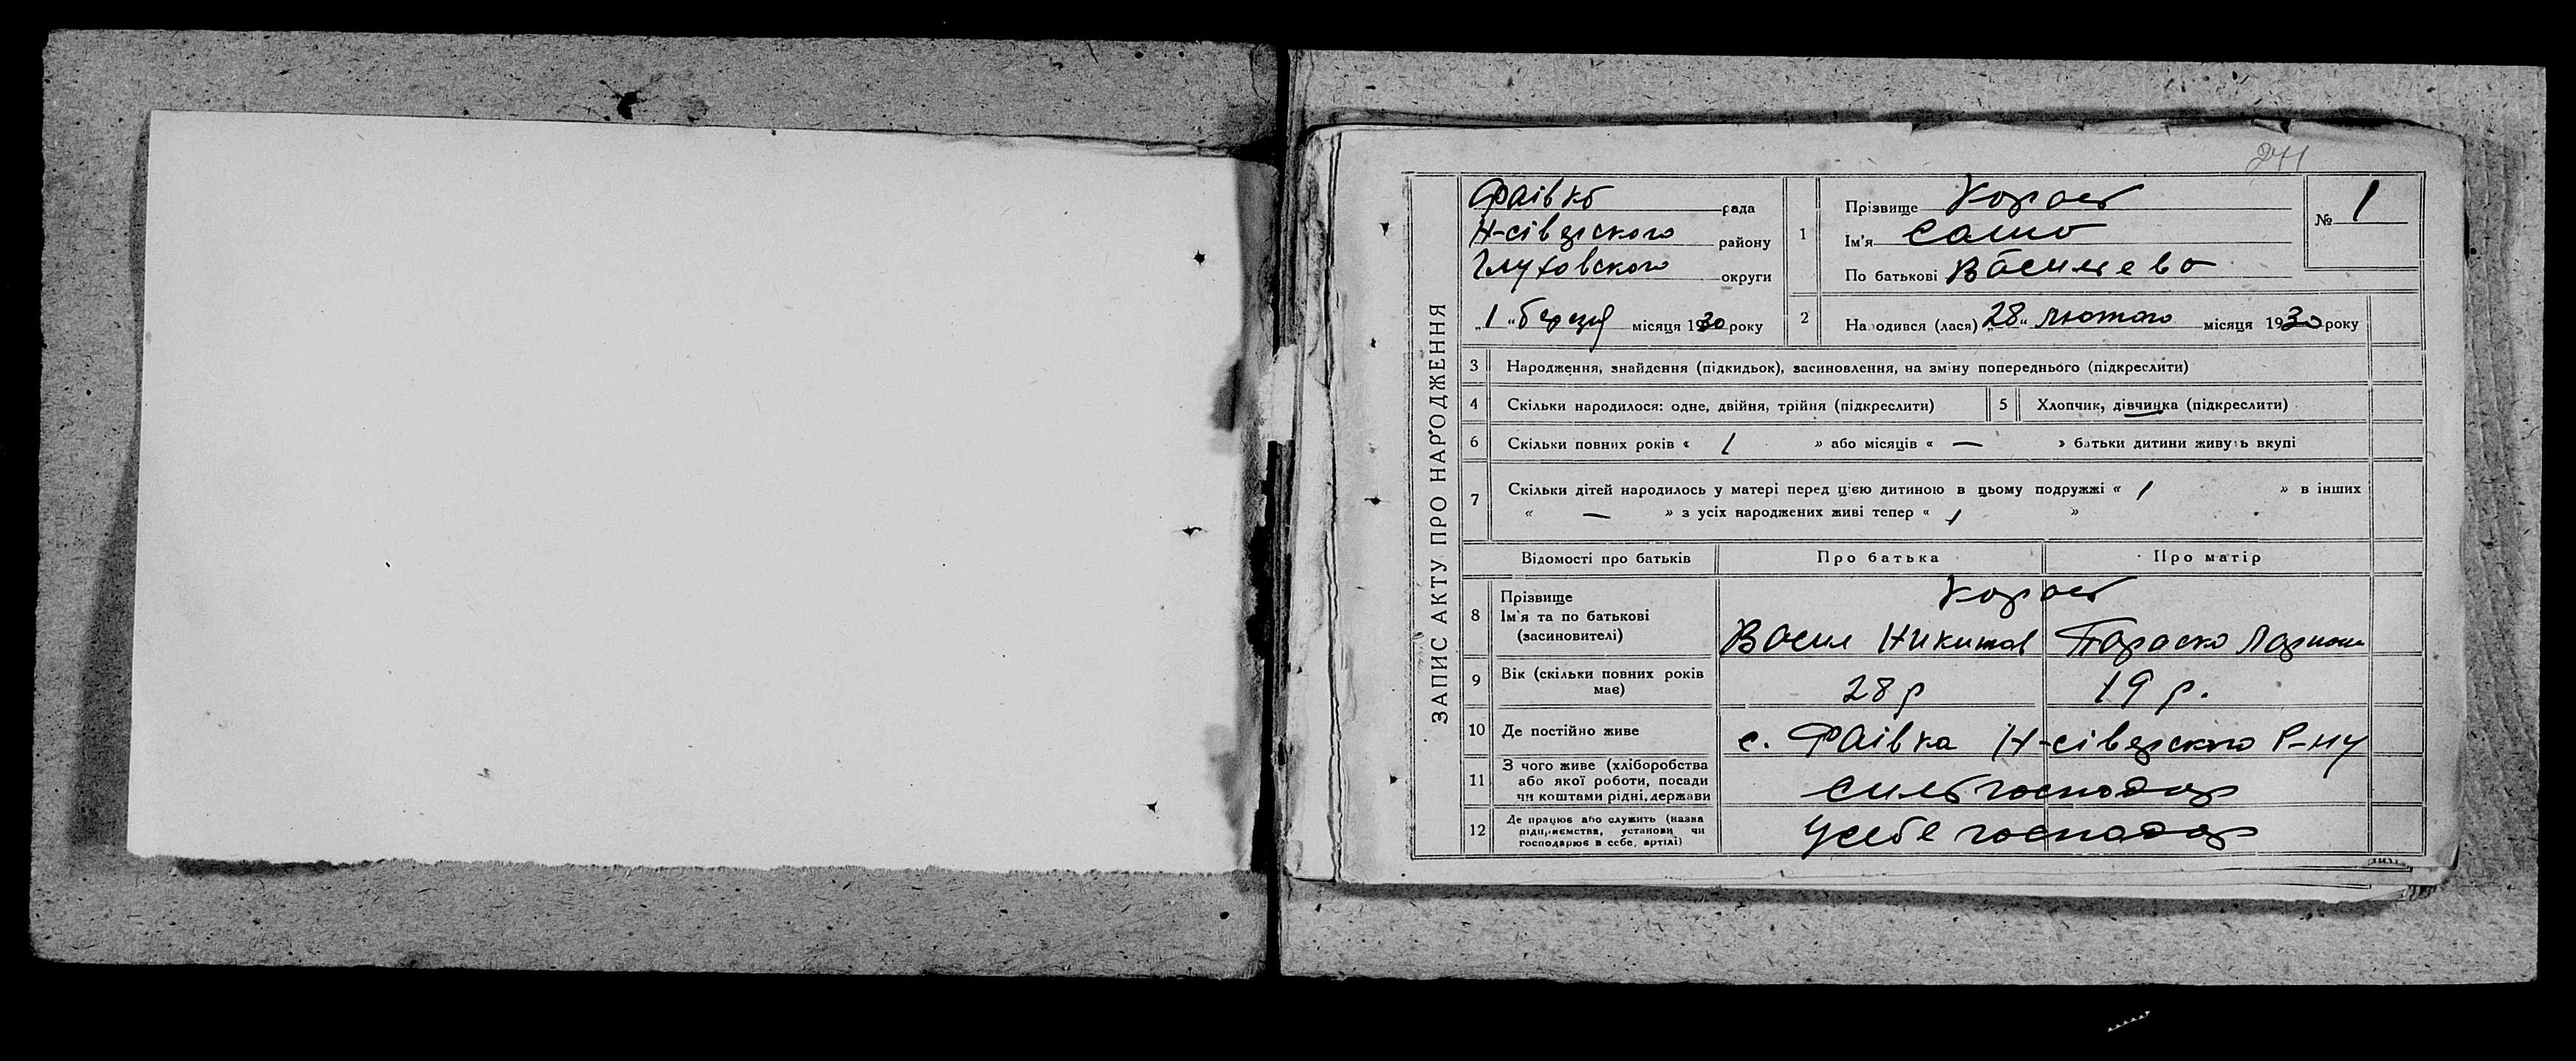 241
ЗАПИС АКТУ ПРО НАРОДЖЕННЯ
Фаівка рада
Н-сіверского району
Глуховского округи
„1“ березня місяця 1930 року
1
Прізвище
Ім'я Саша
По батькові Василева
№ 1
2
Народився (лася) „28“ лютого місяця 1930 року
3 Народження, знайдення (підкидьок), засиновлення, на зміну попереднього (підкреслити)
4 Скільки народилося: одне, двійня, трійня (підкреслити)
5 Хлопчик, дівчинка (підкреслити)
6 Скільки повних років « 1 » або місяців « — » батьки дитини живуть вкупі
7 Скільки дітей народилось у матері перед цією дитиною в цьому подружжі « 1 » в інших
« — » з усіх народжених живі тепер « 1 »
Відомості про батьків Про батька Про матір
8 Прізвище
Ім'я та по батькові
(засиновителі)
Васил Никитов Параска
9 Вік (скільки повних років
має)
28 р 19 р.
10 Де постійно живе с. Фаівка Н-сіверского Р-ну
11 З чого живе (хліборобства
або якої роботи, посади
чи коштами рідні, держави
сильгосподар
12 Де працює або служить (назва
підприємства, установи чи
господарює в себе, артілі)
усебе господар